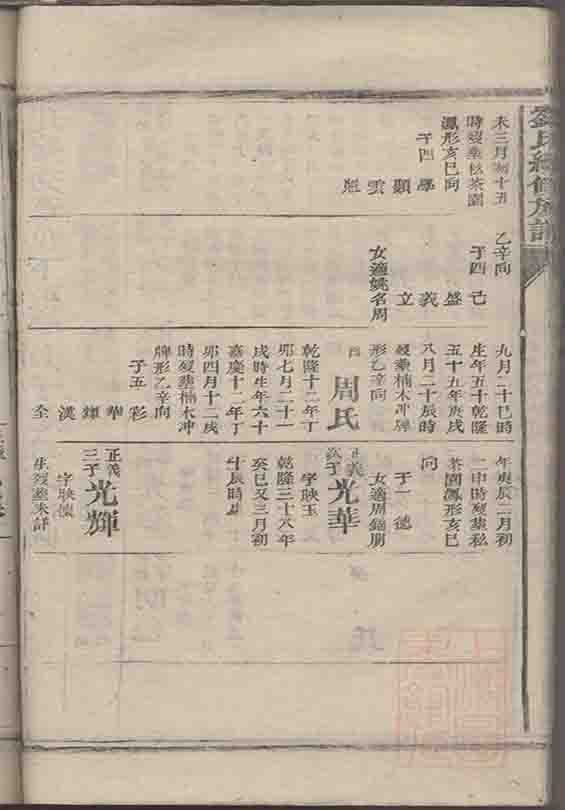 劉氏續修族譜
未三月初十五
時歿塟私茶園
鳳形亥巳向
子四
學
顯
雲
乙辛向
子四
己
盛
義
立
女適姚名周
九月二十巳時
生年五十乾隆
五十五年庚戌
八月二十辰時
歿塟楠木冲牌
形乙辛向
周氏
乾隆十二年丁
卯七月二十一
戌時生年六十
嘉慶十二年丁
卯四月十二戌
時歿塟楠木冲
牌形乙辛向
子五
彩
華
輝
漢
全
年庚辰二月初
二申時歿塟私
茶園鳳形亥巳
向
子一
德
女適周錦朋
正義
次子
光華
字映玉
乾隆三十八年
癸巳又三月初
十辰時生
正義
三子
光輝
字映
生歿塟未詳